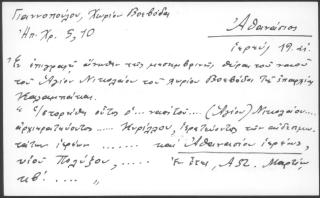 Γιαννοπούλου, Χωρίον Βοεβόδα
Ἠπ. Χρ. 5, 10.
Ἀθανάσιος
ἱερεύς 19. αἰ.
Ἐν ἐπιγραφῇ ἄνωθεν τῆς μεσημβρινῆς θύρας τοῦ ναοῦ
τοῦ Ἁγίου Νικολάου τοῦ χωρίου Βοεβόδα τῆς ἐπαρχίας
Καλαμπάκας.
"Ἱστορήθη οὗτος ὁ ... ναὸς τοῦ .... (Ἁγίου) Νικολάου....
ἀρχιερατεύοντος ...... Κυρίλλου, ἱερατεύοντος τῶν αἰδεσιμω-
τάτων ἱερέων ...... καὶ Ἀθανασίου ἱερέως,
υἱοῦ Πολύζου, ..... Ἐν ἔτει, Α Μαρτίου
κβ´ ... "